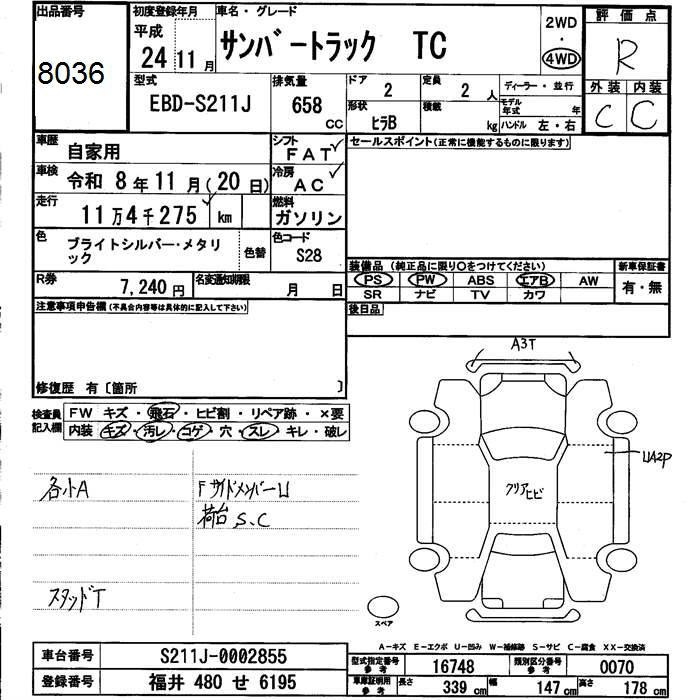 出品番号
8036
初度登録年月
平成
24 11月
車名・グレード
サンバートラック TC
2WD
・
4WD
評価点
R
外装 内装
C C
型式
EBD-S211J
排気量
658 CC
ドア
2
定員
2 人
形状
ヒラB
積載
kg
ディーラー・並行
モデル年式 年
ハンドル 左・右
車歴
自家用
シフト
FAT
車検
令和 8年11月(20日)
冷房
AC
走行
11万4千275 km
燃料
ガソリン
色
ブライトシルバー・メタリック
色替
色コード
S28
R券
7,240円
名変通知期限
月 日
セールスポイント(正常に機能するものに限ります)
装備品 (純正品に限り○をつけてください)
PS PW ABS エアB AW
SR ナビ TV カワ
新車保証書
有・無
後日品
注意事項申告欄(不具合内容等は具体的に記入して下さい)
修復歴 有〔箇所 〕
検査員記入欄
FW キズ・飛石・ヒビ割・リペア跡・×要
内装 キズ・汚レ・コゲ・穴・スレ・キレ・破レ
各小A
FサイドメンバーU
荷台S、C
スタッドT
A3T
UA2P
クリアヒビ
スペア
A-キズ E-エクボ U-凹み W-補修跡 S-サビ C-腐食 XX-交換済
車台番号
S211J-0002855
登録番号
福井 480 せ 6195
型式指定番号 参考
16748
類別区分番号 参考
0070
車庫証明用 参考
長さ 339 cm
幅 147 cm
高さ 178 cm